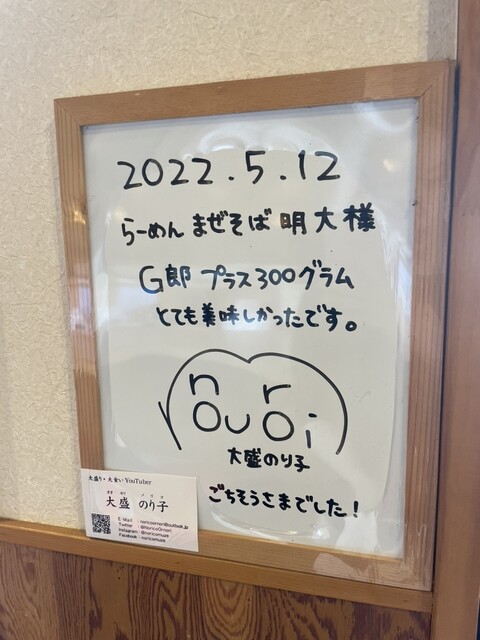 2022.5.12
らーめん まぜそば 明大様
G郎 プラス300グラム
とても美味しかったです。
nouri
大盛のり子
ごちそうさまでした！
大盛り・大食い YouTuber
大盛 のり子
E-Mail
Twitter
Instagram
Facebook